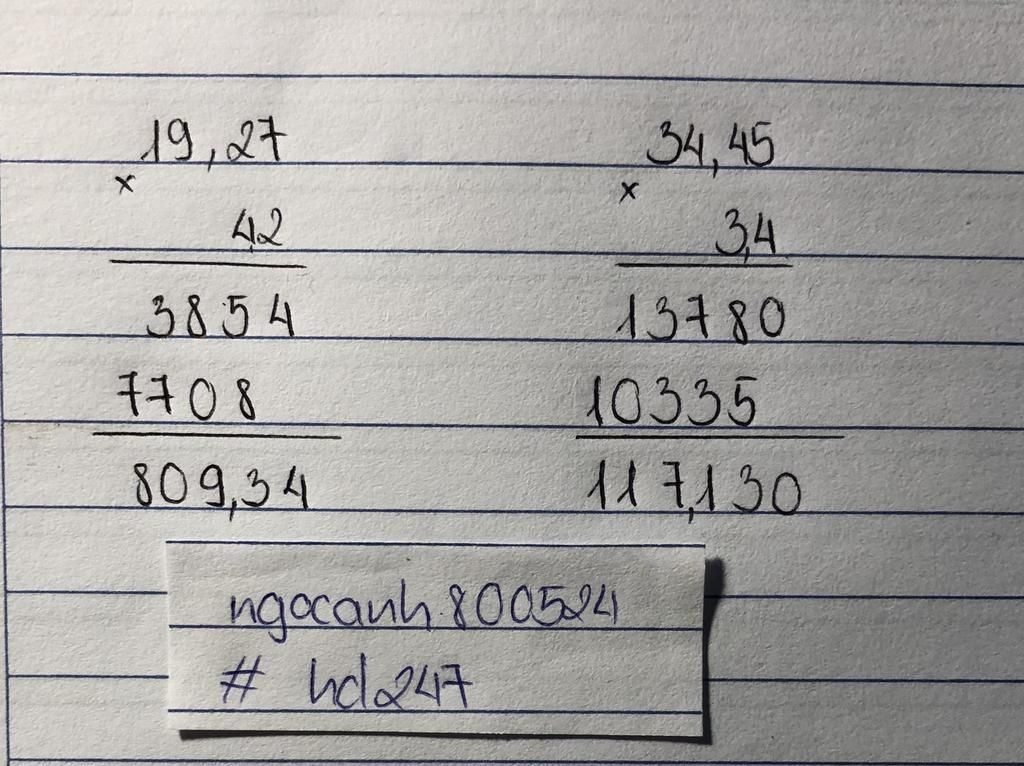 19,27 34,45
× ×
42 3,4
3854 13780
7708 10335
809,34 117,130
ngocanh.800524
# hd247